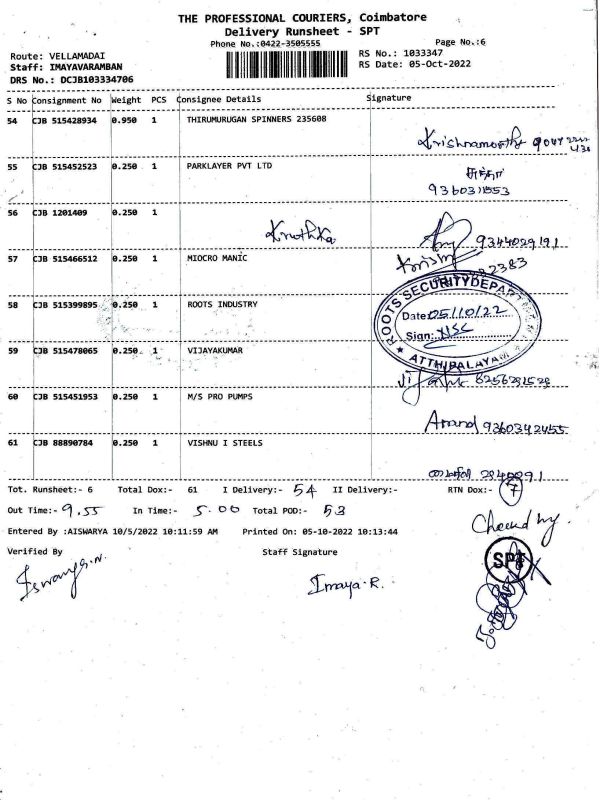 THE PROFESSIONAL COURIERS, Coimbatore
Delivery Runsheet - SPT
Phone No.:0422-3505555 Page No.:6
Route: VELLAMADAI RS No.: 1033347
Staff: IMAYAVARAMBAN RS Date: 05-Oct-2022
DRS No.: DCJB103334706
S No Consignment No Weight PCS Consignee Details Signature
54 CJB 515428934 0.950 1 THIRUMURUGAN SPINNERS 235608
Krishnamoorthy
55 CJB 515452523 0.250 1 PARKLAYER PVT LTD
56 CJB 1201409 0.250 1
9344029191
57 CJB 515466512 0.250 1 MIOCRO MANIC
58 CJB 515399895 0.250 1 ROOTS INDUSTRY
ROOTS SECURITY DEPARTMENT
Date: 05/10/22
Sign:
★ ATTHIPALAYAM ★
59 CJB 515478065 0.250 1 VIJAYAKUMAR
60 CJB 515451953 0.250 1 M/S PRO PUMPS
Anand 9360342455
61 CJB 88890784 0.250 1 VISHNU I STEELS
Tot. Runsheet:- 6 Total Dox:- 61 I Delivery:- 54 II Delivery:- RTN Dox:- 7
Out Time:- 9.55 In Time:- 5.00 Total POD:- 53
Entered By :AISWARYA 10/5/2022 10:11:59 AM Printed On: 05-10-2022 10:13:44
Verified By Staff Signature
SPT
Imaya.R.